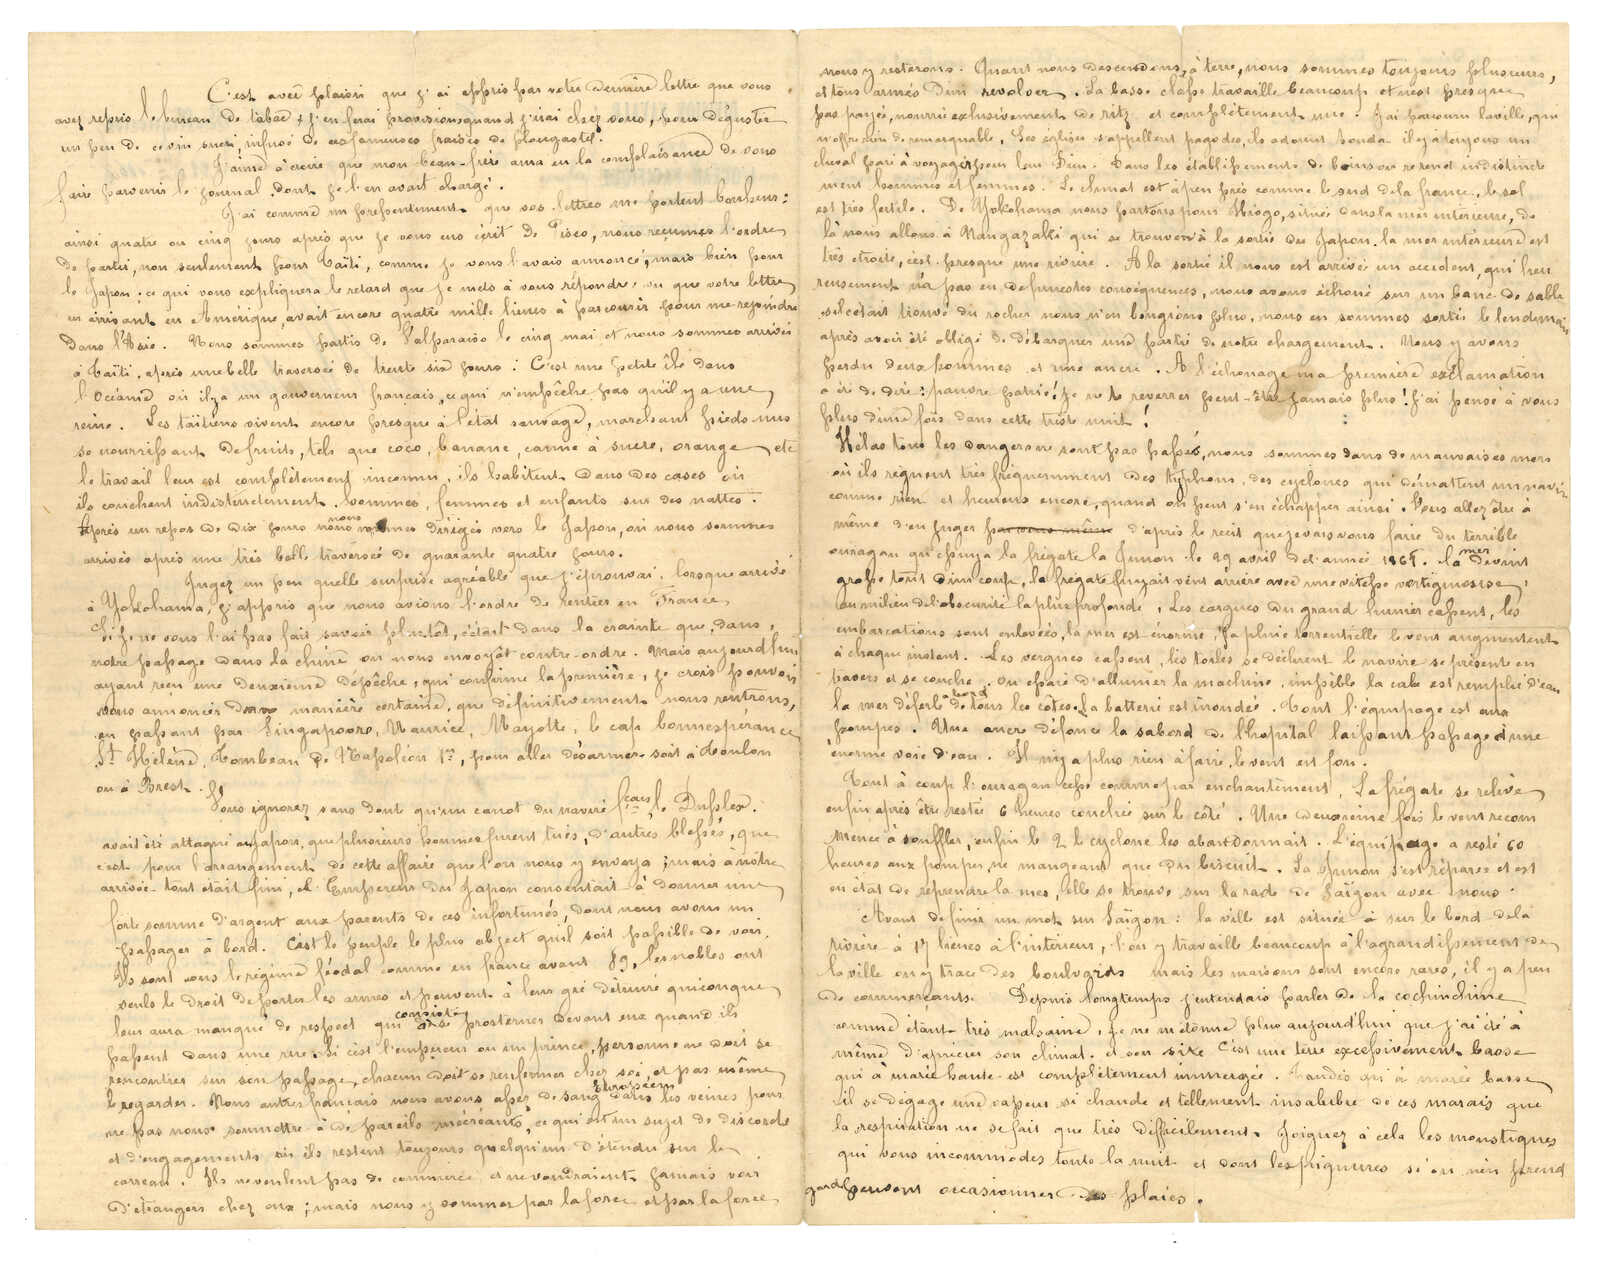 C'est avec plaisir que j'ai appris par votre dernière lettre que vous
avez repris le bureau de tabac & j'en ferai provision quand j'irai chez vous, pour déguster
un peu de ce vin sucré, infusé de ces fameuses fraises de plougastel.
J'aime à croire que mon beau-frère aura eu la complaisance de vous
faire parvenir le journal dont je l'en avait chargé.
J'ai comme un pressentiment que ses lettres me portent bonheur :
ainsi quatre ou cinq jours après que je vous eus écrit de Pisco, nous reçumes l'ordre
de partir, non seulement pour Taïti, comme je vous l'avais annoncé, mais bien pour
le Japon : ce qui vous expliquera le retard que je mets à vous répondre, vu que votre lettre
en arrivant en Amérique, avait encore quatre mille lieues à parcourir pour me rejoindre
dans l'Asie. Nous sommes partis de Valparaiso le cinq mai et nous sommes arrivés
à Taïti, après une belle traversée de trente six jours : C'est une petite île dans
l'Océanie où il y a un gouverneur français, ce qui n'empêche pas qu'il y a une
reine. Les taïtiens vivent encore presque à l'état sauvage, marchant pieds nus
se nourrissant de fruits, tels que coco, banane, canne à sucre, orange etc
le travail leur est complètement inconnu, ils habitent dans des cases où
ils couchent indistinctement hommes, femmes et enfants sur des nattes.
Après un repos de dix jours nous nous sommes dirigés vers le Japon, où nous sommes
arrivés après une très belle traversée de quarante quatre jours.
Jugez un peu quelle surprise agréable que j'éprouvai, lorsque arrivé
à Yokohama, j'appris que nous avions l'ordre de rentrer en France
Si je ne vous l'ai pas fait savoir plutôt, c'était dans la crainte que, dans
notre passage dans la chine on nous envoyât contre-ordre. Mais aujourd'hui
ayant reçu une deuxième dépêche, qui confirme la première, je crois pouvoir
vous annoncer d'une manière certaine, que définitivement nous rentrons,
en passant par Singapoore, Maurice, Mayotte, le cap bonnespérance
St Hélène, Tombeau de Napoléon 1er, pour aller désarmer soit à Toulon
ou à Brest.
Vous ignorez sans dout qu'un canot du navire fçais le Dupleix
avait été attaqué au Japon, que plusieurs hommes furent tués, d'autres blessés, que
c'est pour l'arrangement de cette affaire que l'on nous y envoya ; mais à notre
arrivée tout était fini, l'Empereur du Japon consentait à donner une
forte somme d'argent aux parents de ces infortunés, dont nous avons un
passager à bord. C'est le peuple le plus abject qu'il soit possible de voir.
Ils sont sous le régime féodal comme en france avant 89, les nobles ont
seuls le droit de porter les armes et peuvent à leur gré détruire quiconque
leur aura manqué de respect qui consiste à se prosterner devant eux quand ils
passent dans une rue. Si c'est l'empereur ou un prince, personne ne doit se
rencontrer sur son passage, chacun doit se renfermer chez soi, et pas même
le regarder. Nous autres français nous avons assez de sang Européen dans les veines pour
ne pas nous soumettre à de pareils mécréants, ce qui est un sujet de discorde
et d'engagements où ils restent toujours quelqu'un d'étendu sur le
carreau. Ils ne veulent pas de commerce et ne voudraient jamais voir
d'étrangers chez eux ; mais nous y sommes par la force et par la force
nous y resterons. Quant nous descendons à terre, nous sommes toujours plusieurs,
et tous armés d'un revolver. La basse classe travaille beaucoup et n'est presque
pas payée, nourrie exclusivement de ritz et complètement nue. J'ai parcouru la ville, qui
n'offre rien de remarquable, Les églises s'appellent pagodes, ils adorent bouda il y a toujours un
cheval paré à voyager pour leur Dieu. Dans les établissements de bains on reçoit indistincte
ment hommes et femmes. Le climat est à peu près comme le sud de la france, le sol
est très fertile. De Yokohama nous partons pour Hiogo, situé dans la mer intérieure, de
là nous allons à Nangazaki qui se trouve à la sortie du Japon. la mer intérieure est
très étroite, c'est presque une rivière. A la sortie il nous est arrivé un accident, qui heu
reusement n'a pas eu de funestes conséquences, nous avons échoué sur un banc de sable
s'il s'était trouvé du rocher nous n'en bougions plus, nous en sommes sortis le lendemain
après avoir été obligé de débarquer une partie de notre chargement. Nous y avons
perdu deux hommes et une ancre. A l'échouage ma première exclamation
a été de dire : pauvre patrie ! je ne te reverrai peut-être jamais plus ! J'ai pensé à vous
plus d'une fois dans cette triste nuit !
Hélas tous les dangers ne sont pas passés, nous sommes dans de mauvaises mers
où ils règnent très fréquemment des typhons, des cyclones qui démattent un navire
comme rien et heureux encore, quand on peut s'en échapper ainsi. Vous allez être à
même d'en juger par vous même d'après le récit que je vais vous faire du terrible
ouragan qu'essuya la frégate la Junon le 29 avril de l'année 1868. la mer devint
grosse tout d'un coup, la frégate fuyait vent arrière avec une vitesse vertigineuse,
au milieu de l'obscurité la plus profonde. Les cargues du grand hunier cassent, les
embarcations sont enlevées, la mer est énorme, la pluie torrentielle le vent augmentent
à chaque instant. Les vergues cassent, les toiles se déchirent le navire se présente en
travers et se couche. On essaie d'allumer la machine, impssible la cale est remplie d'eau
la mer déferle abord de tous les côtés. La batterie est inondée. Tout l'équipage est aux
pompes. Une ancre défonce la sabord de l'hopital laissant passage à une
énorme voie d'eau. Il n'y a plus rien à faire, le vent est fou.
Tout à coup l'ouragan cesse comme par enchantement, La frégate se relève
enfin après être restée 6 heures couchée sur le côté. Une deuxième fois le vent recom
mence à souffler, enfin le 2 le cyclone les abandonnait. L'équipage a resté 60
heures aux pompes, ne mangeant que du biscuit. La Junon s'est réparée et est
en état de reprendre la mer, elle se trouve sur la rade de Saïgon avec nous.
Avant de finir un mot sur Saïgon : la ville est située à sur le bord de la
rivière à 17 lieues à l'intérieur, l'on y travaille beaucoup à l'agrandissement de
la ville on y trace des boulvards mais les maisons sont encore rares, il y a peu
de commerçants. Depuis longtemps j'entendais parler de la cochinchine
comme étant très malsaine, je ne m'étonne plus aujourd'hui que j'ai été à
même d'aprécier son climat et son site C'est une terre excessivement basse
qui à marée haute est complètement immergée. Tandis qu'à marée basse
il se dégage une vapeur si chaude et tellement insalubre de ces marais que
la respiration ne se fait que très difficilement. Joignez à cela les moustiques
qui vous incommodes toute la nuit et dont les piqures si on n'en prend
garde peuvent occasionner des plaies.